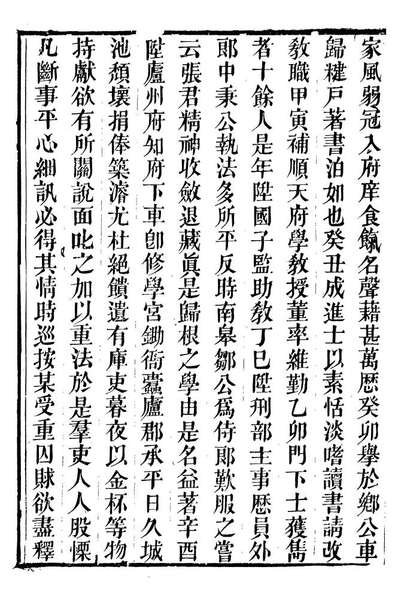 家風弱冠入府庠食餼名聲藉甚萬歷癸卯舉於鄉公車
歸鍵戸著書泊如也癸丑成進士以素恬淡嗜讀書請改
敎職甲寅補順天府學敎授董率維勤乙卯門下士獲雋
者十餘人是年陞國子監助敎丁巳陞刑部主事歷員外
郎中秉公執法多所平反時南皋鄒公爲侍郎歎服之嘗
云張君精神收斂退藏眞是歸根之學由是名益著辛酉
陞廬州府知府下車卽修學宮鋤衙蠹廬郡承平日久城
池頹壞捐俸築濬尤杜絕饋遺有庫吏暮夜以金杯等物
持獻欲有所關說面叱之加以重法於是羣吏人人股慄
凡斷事平心細訊必得其情時巡按某受重囚賕欲盡釋